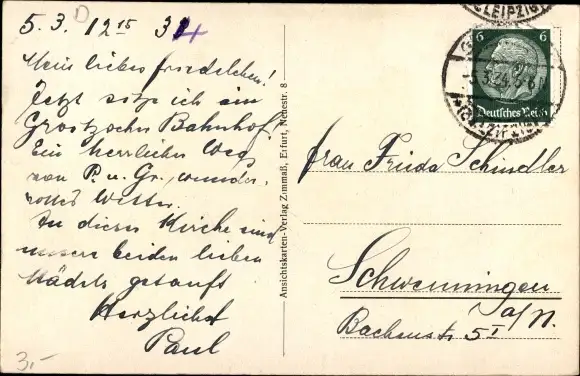 5.3. 12 15 34
Mein liebes Friedelchen!
Jetzt sitze ich am
Grotzscher Bahnhof.
Ein herrlicher Weg
von P. u. Gr., wunder-
volles Wetter.
In dieser Kirche sind
unsere beiden lieben
Mädels getauft
Herzlichst
Paul
3,-
Ansichtskarten-Verlag Zimmaß, Erfurt, Neuestr. 8
LEIPZIG
6 6
Deutsches Reich
Frau Frieda Schindler
Schwenningen
a/N.
Bachenstr. 5 I